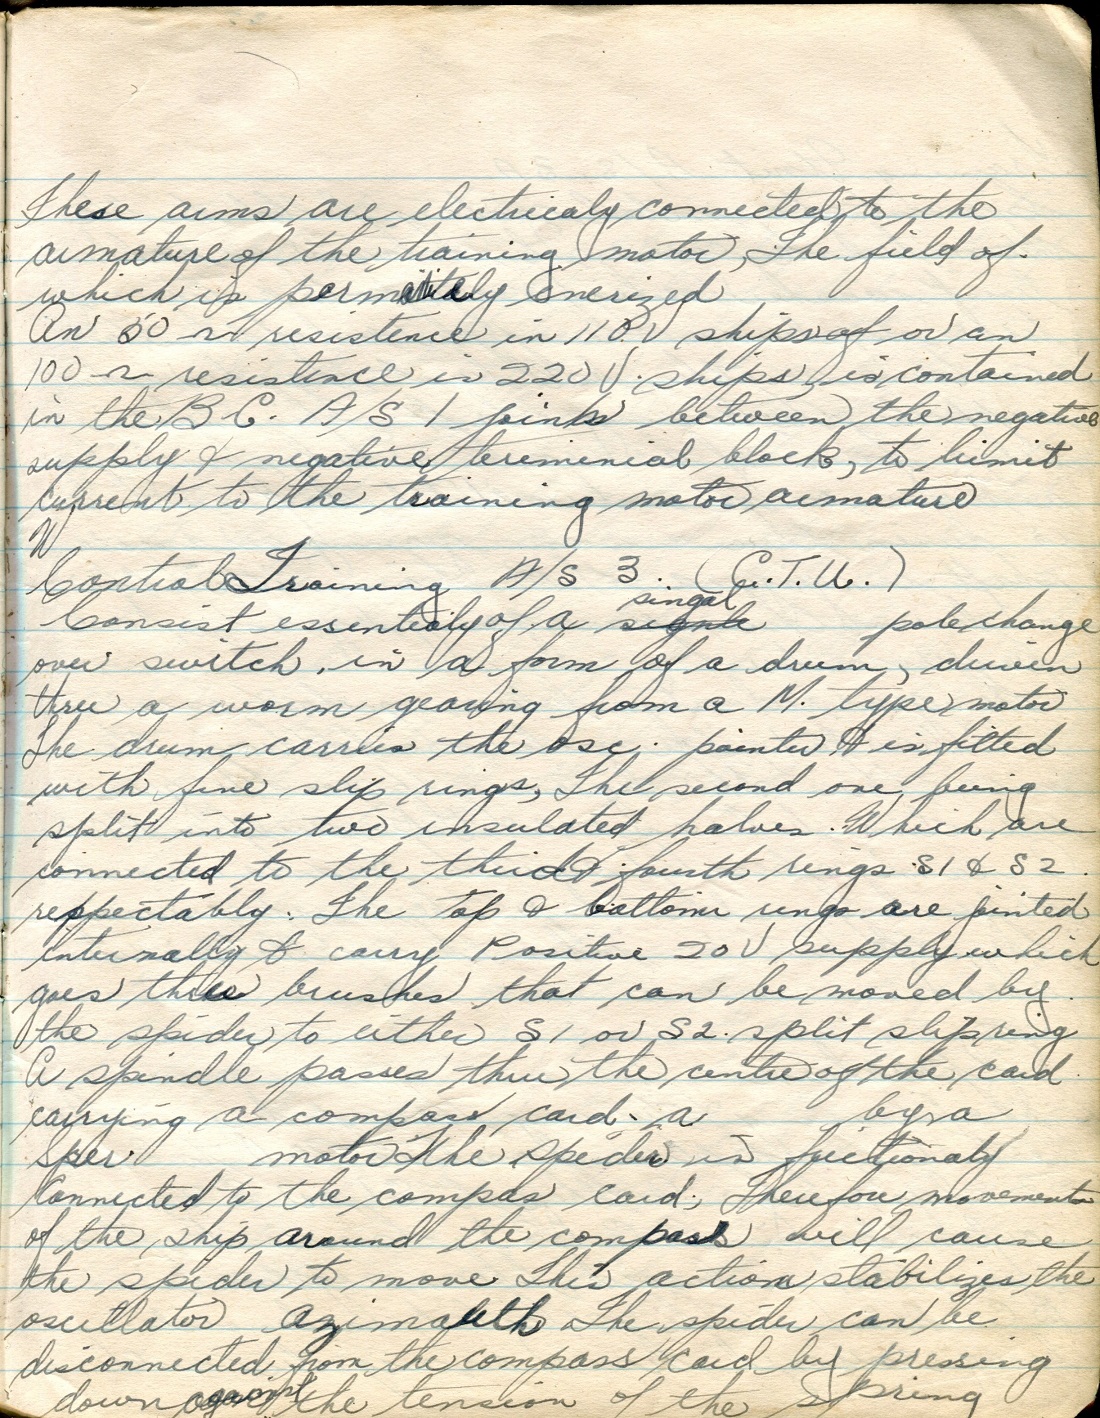 These arms are electricaly connected to the
armature of the training motor, The field of
which is permititely enerized
An 50 ~ resistence in 110 V ships of or an
100 ~ resistance in 220 V. ships, is contained
in the B C. A/S 1 joints between the negative
supply & negative teriminial block, to limit
current to the training motor armature
Control Training A/S 3. (C.T.U.)
singal
Consist essentialy of a single pole change
over switch, in a form of a drum, driven
thru a worm gearing from a M. type motor
The drum carries the osc. pointer & is fitted
with fine slip rings, The second one being
split into two insulated halves. Which are
connected to the third & fourth rings S1 & S2.
reppectably. The top & bottom rings are jointed
internally & carry Positive 20 V supply which
goes thru brushes that can be moved by
the spider to either S1 or S2 split slip ring
A spindle passes thru the centre of the card
carrying a compass card. a by a
Sper motor The spider is frictionaly
Connected to the compas card, Therefore movements
of the ship around the compass will cause
the spider to move This action stabilizes the
oscillator azimuth The spider can be
disconnected from the compass card by pressing
down against the tension of the spring